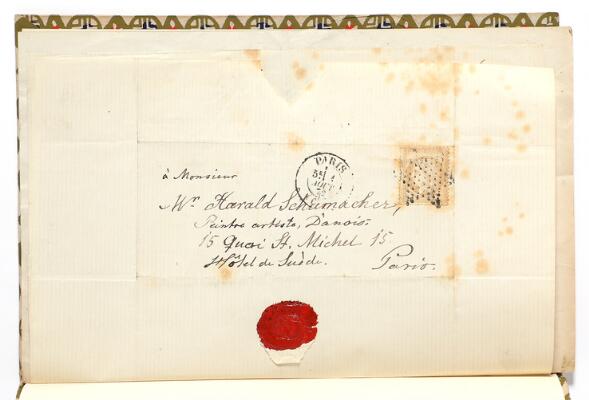 PARIS
AOUT
à Monsieur
Mr. Harald Schumacher,
Peintre artiste, Danois.
15 Quai St. Michel 15.
Hôtel de Suède.
Paris.